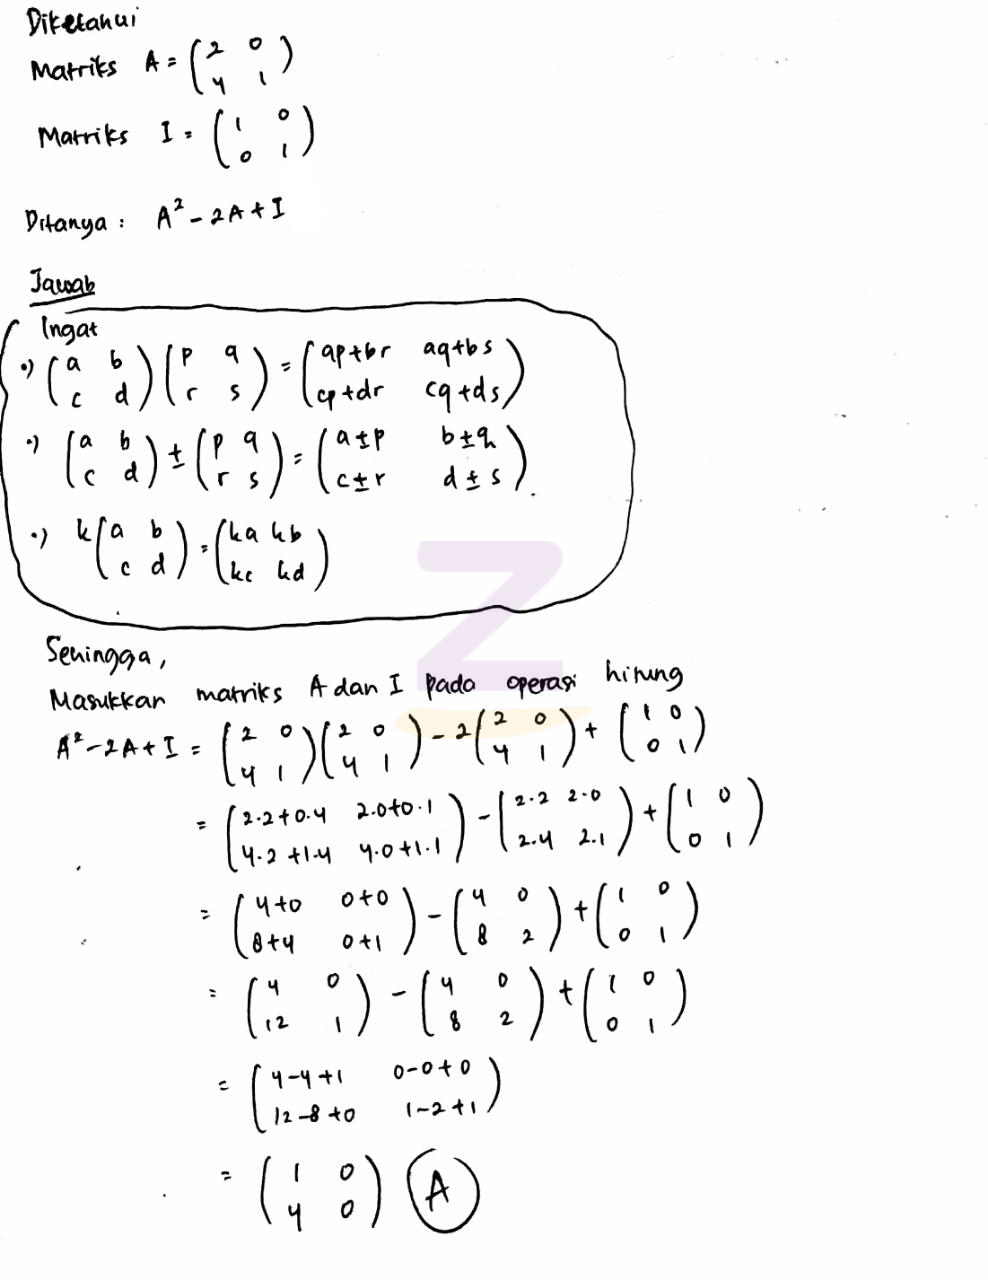 Diketahui
Matriks A = (2 0
4 1)
Matriks I = (1 0
0 1)
Ditanya : A² - 2A + I
Jawab
Ingat
•) (a b
c d) (p q
r s) = (ap+br aq+bs
cp+dr cq+ds)
•) (a b
c d) ± (p q
r s) = (a±p b±q
c±r d±s)
•) k(a b
c d) = (ka kb
kc kd)
Sehingga,
Masukkan matriks A dan I pada operasi hitung
A² - 2A + I = (2 0
4 1) (2 0
4 1) - 2(2 0
4 1) + (1 0
0 1)
= (2·2+0·4 2·0+0·1
4·2+1·4 4·0+1·1) - (2·2 2·0
2·4 2·1) + (1 0
0 1)
= (4+0 0+0
8+4 0+1) - (4 0
8 2) + (1 0
0 1)
= (4 0
12 1) - (4 0
8 2) + (1 0
0 1)
= (4-4+1 0-0+0
12-8+0 1-2+1)
= (1 0
4 0) A
Z